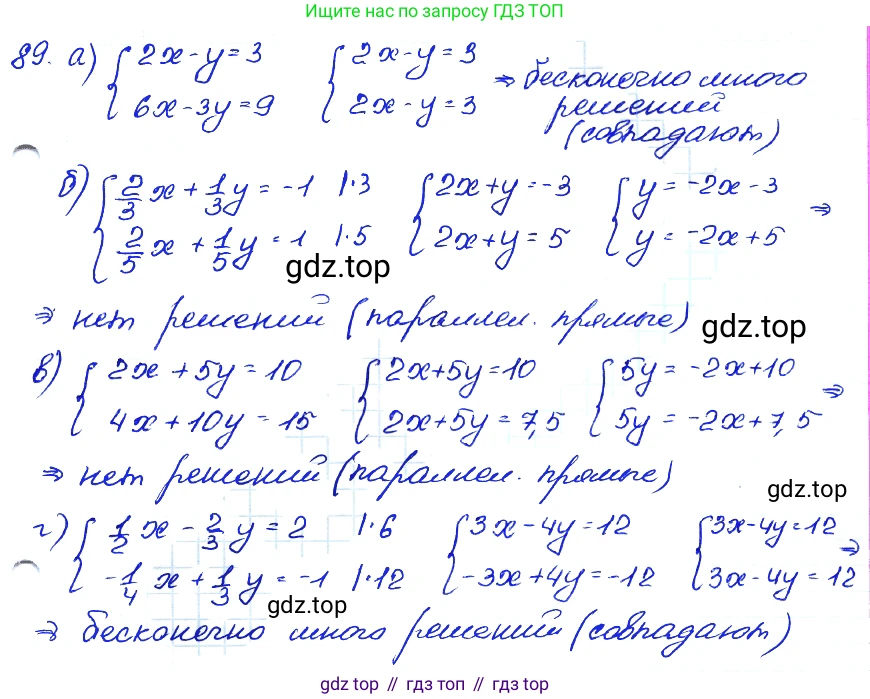 Ищите нас по запросу ГДЗ ТОП
89. а) { 2x - y = 3 { 2x - y = 3 ⇒ бесконечно много
6x - 3y = 9 2x - y = 3 решений
(совпадают)
б) { 2/3 x + 1/3 y = -1 |·3 { 2x + y = -3 { y = -2x - 3 ⇒
2/5 x + 1/5 y = 1 |·5 2x + y = 5 y = -2x + 5
gdz.top
⇒ нет решений (параллел. прямые)
gdz.top
в) { 2x + 5y = 10 { 2x + 5y = 10 { 5y = -2x + 10 ⇒
4x + 10y = 15 2x + 5y = 7,5 5y = -2x + 7,5
⇒ нет решений (параллел. прямые)
gdz.top
г) { 1/2 x - 2/3 y = 2 |·6 { 3x - 4y = 12 { 3x - 4y = 12 ⇒
-1/4 x + 1/3 y = -1 |·12 -3x + 4y = -12 3x - 4y = 12
gdz.top
⇒ бесконечно много решений (совпадают)
gdz.top // гдз топ // гдз.топ